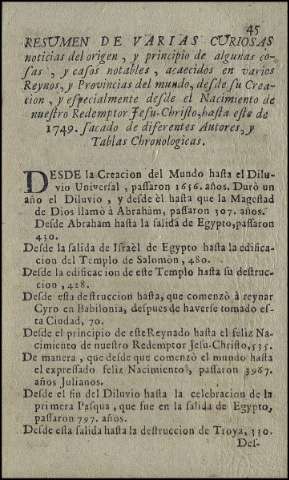 45
RESUMEN DE VARIAS CURIOSAS
noticias del origen, y principio de algunas co-
sas, y casos notables, acaecidos en varios
Reynos, y Provincias del mundo, desde su Crea-
cion, y especialmente desde el Nacimiento de
nuestro Redemptor Jesu-Christo, hasta este de
1749. sacado de diferentes Autores, y
Tablas Chronologicas.
DESDE la Creacion del Mundo hasta el Dilu-
vio Universal, passaron 1656. años. Durò un
año el Diluvio, y desde èl hasta que la Magestad
de Dios llamò à Abrahàm, passaron 307. años.
Desde Abrahàm hasta la salida de Egypto, passaron
430.
Desde la salida de Israèl de Egypto hasta la edifica-
cion del Templo de Salomòn, 480.
Desde la edificacion de este Templo hasta su destruc-
cion, 428.
Desde esta destruccion hasta, que comenzò à reynar
Cyro en Babilonia, despues de haverse tomado es-
ta Ciudad, 70.
Desde el principio de este Reynado hasta el feliz Na-
cimiento de nuestro Redemptor Jesu-Christo, 535.
De manera, que desde que comenzò el mundo hasta
el expressado feliz Nacimiento, passaron 3967.
años Julianos.
Desde el fin del Diluvio hasta la celebracion de la
primera Pasqua, que fue en la salida de Egypto,
passaron 797. años.
Desde esta salida hasta la destruccion de Troya, 330.
Des-